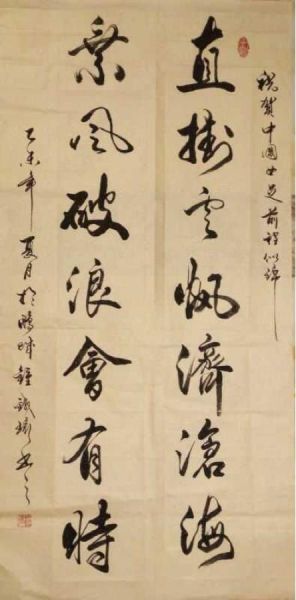 祝賀中國女足前程似錦
直掛云帆濟滄海
乘風破浪會有時
乙未年夏月於鵬城鐘书之